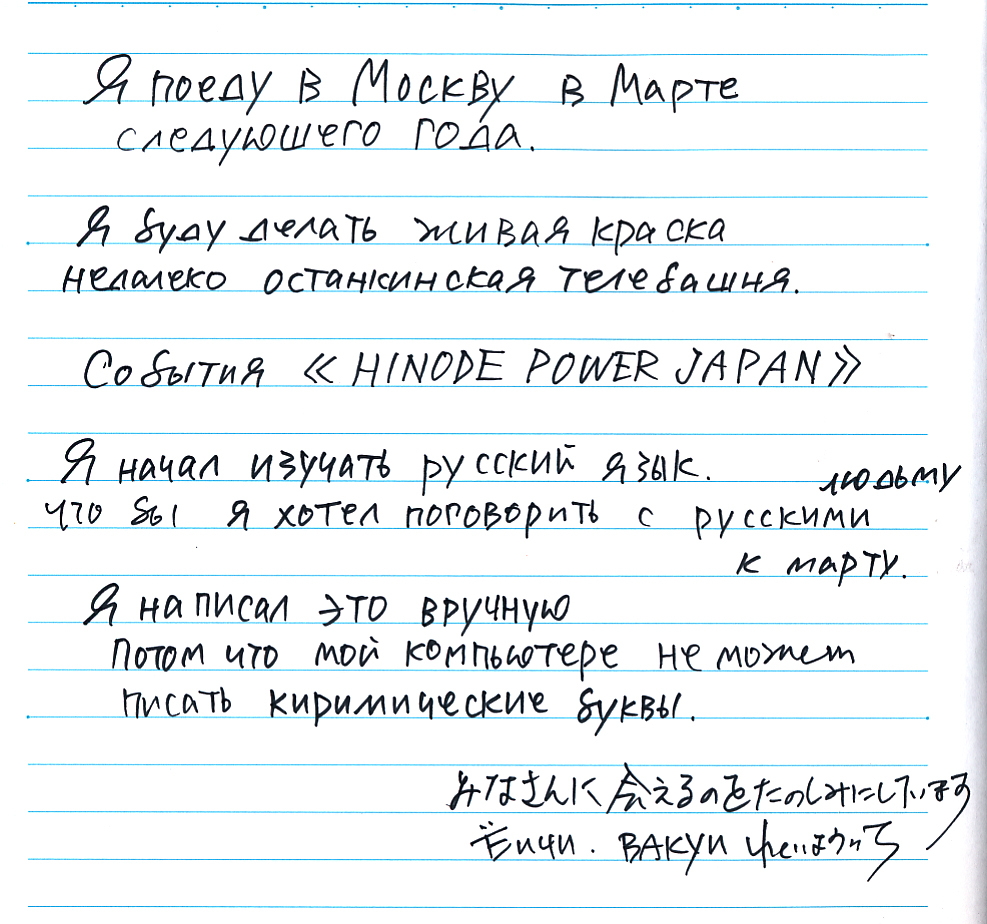 Я поеду в Москву в Марте
следующего года.
Я буду делать живая краска
недалеко останкинская телебашня.
События «HINODE POWER JAPAN»
Я начал изучать русский язык.
что бы я хотел поговорить с русскими людьму
к марту.
Я написал это вручную
Потом что мой компьютере не может
писать киримические буквы.
みなさんに会えるのをたのしみにしています
Ёичи. ВАКУИ